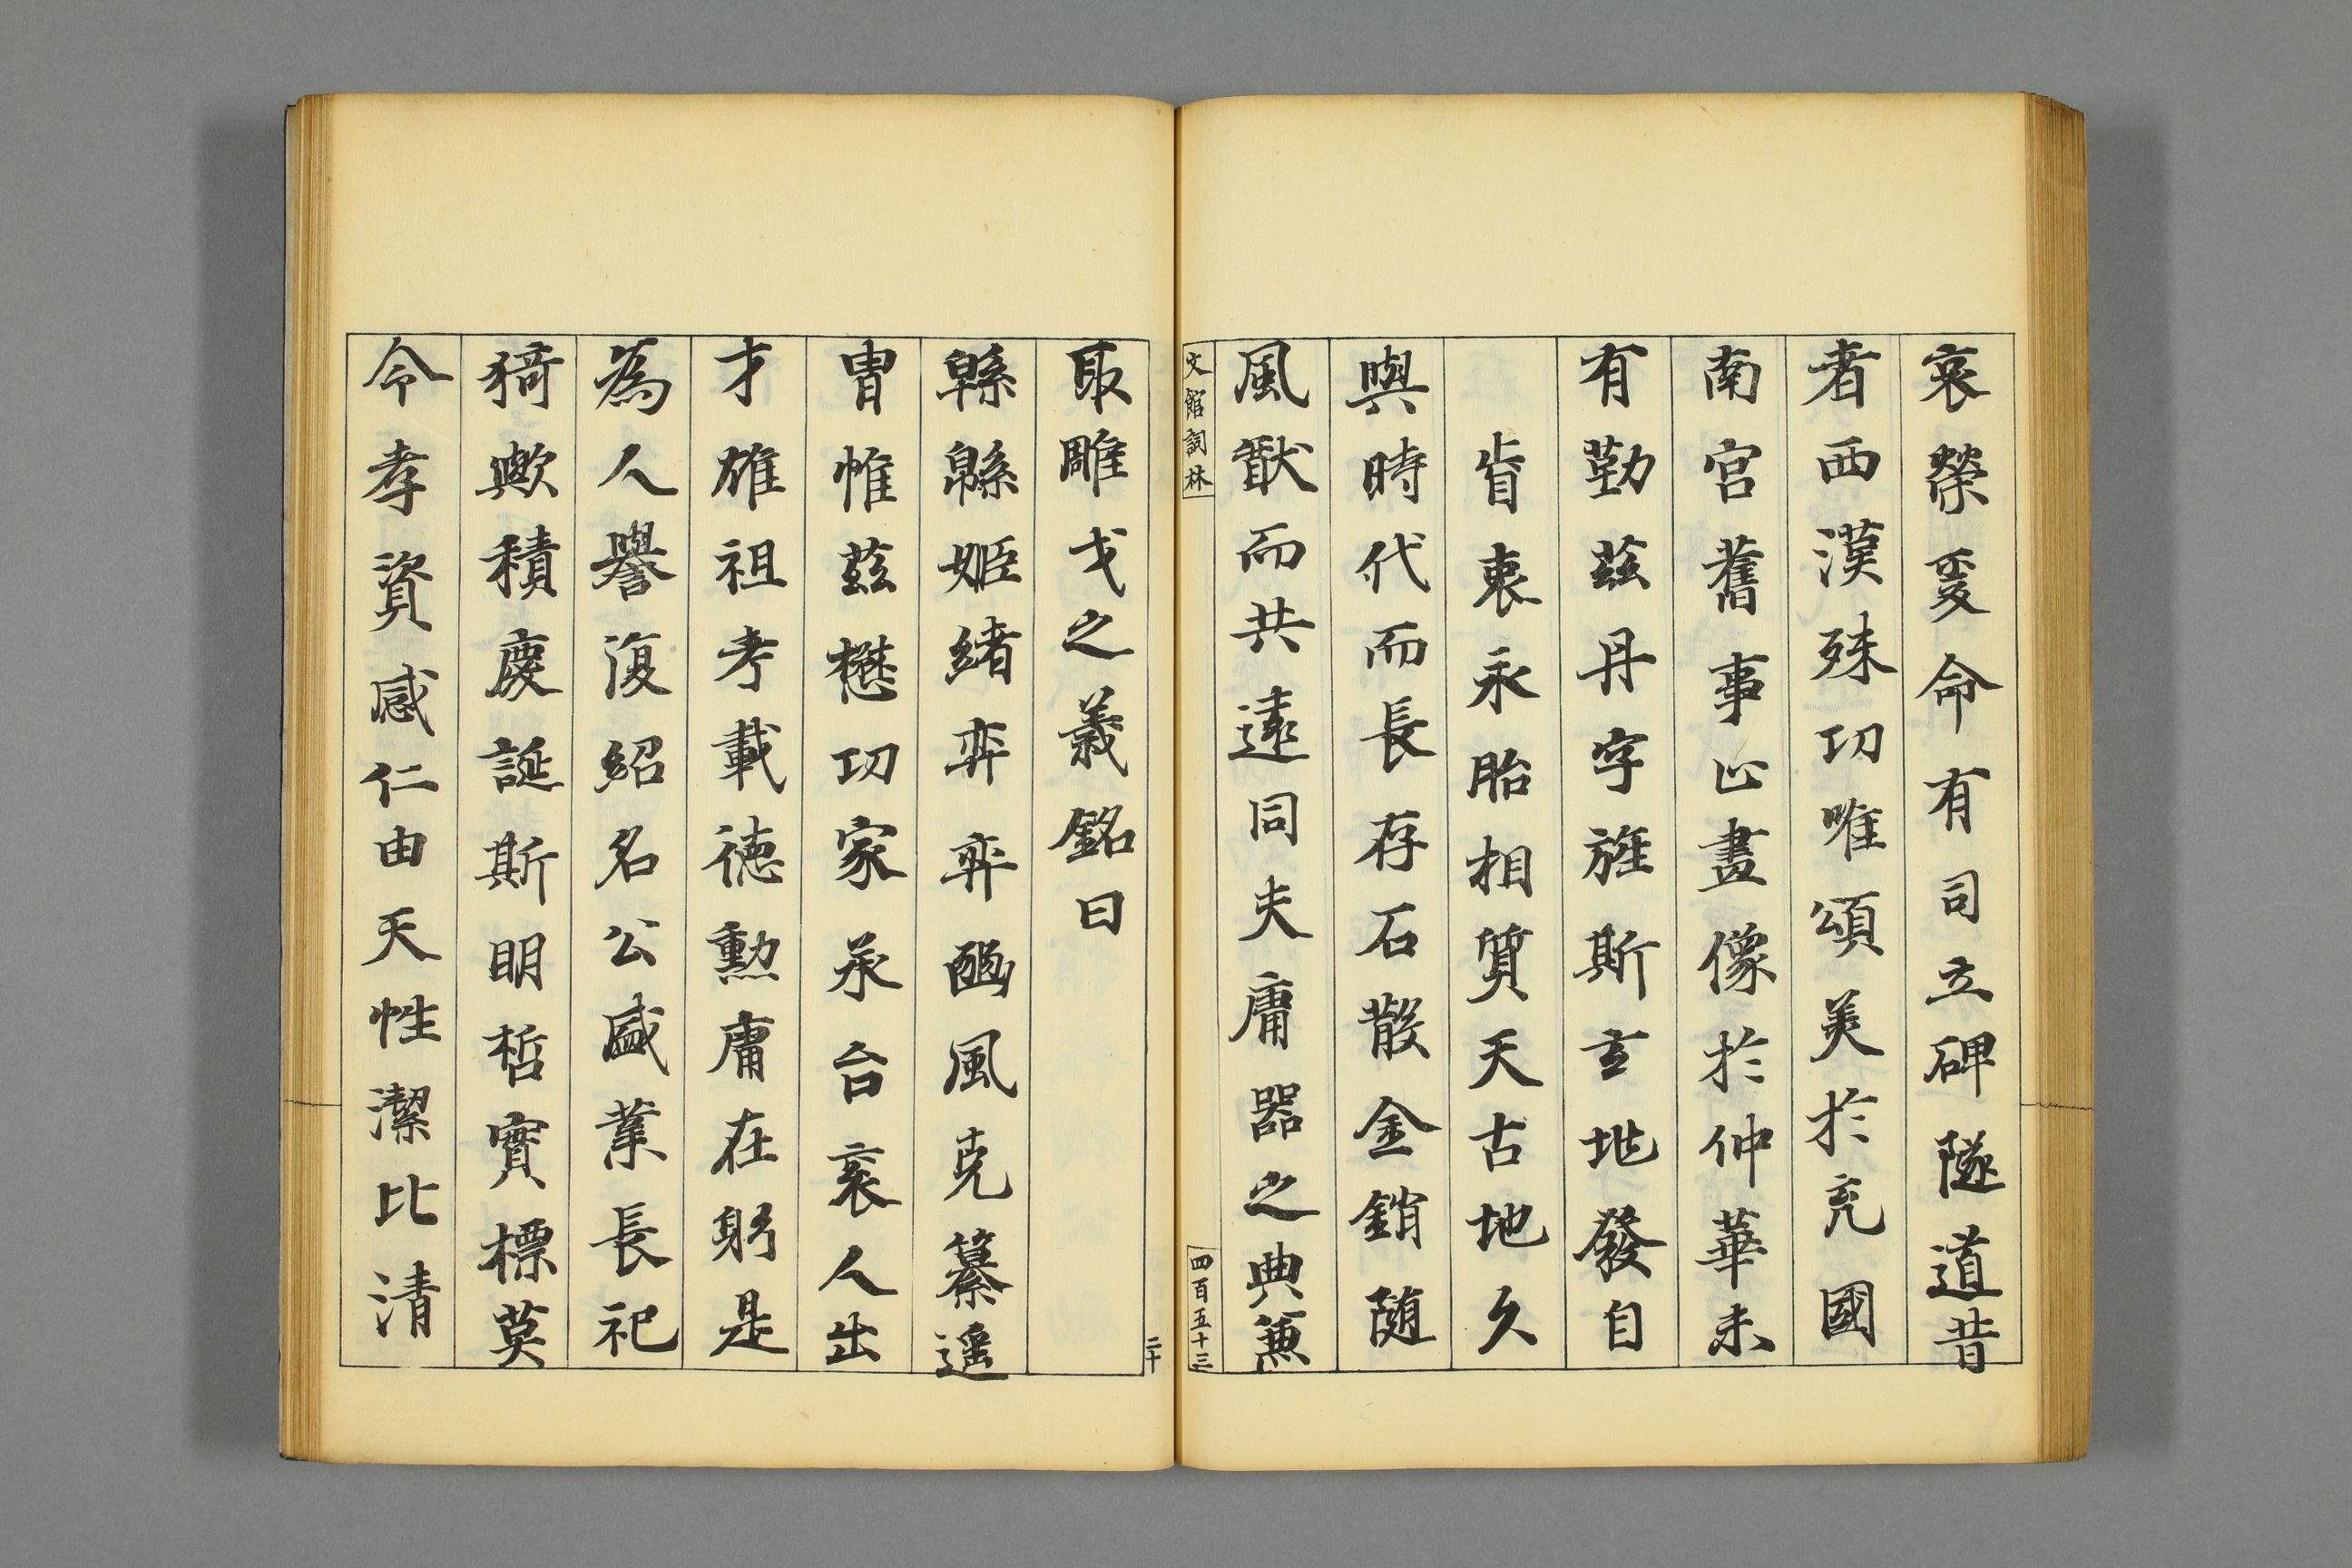 哀榮爰命有司立碑隧道昔
者西漢殊功唯頌美於充國
南宮舊事止畫像於仲華未
有勒茲丹字旌斯玄地發自
㫖衷永貽相質天古地久
與時代而長存石散金銷随
風猷而共遠同夫庸器之典兼
文館詞林
四百五十三
二十
取雕戈之義銘曰
緜緜姬緒弈弈豳風克纂遥
冑惟茲懋功家承台衮人出
才雄祖考載徳勲庸在躬是
為人譽復紹名公盛業長祀
猗歟積慶誕斯明哲實標莫
令孝資感仁由天性潔比清